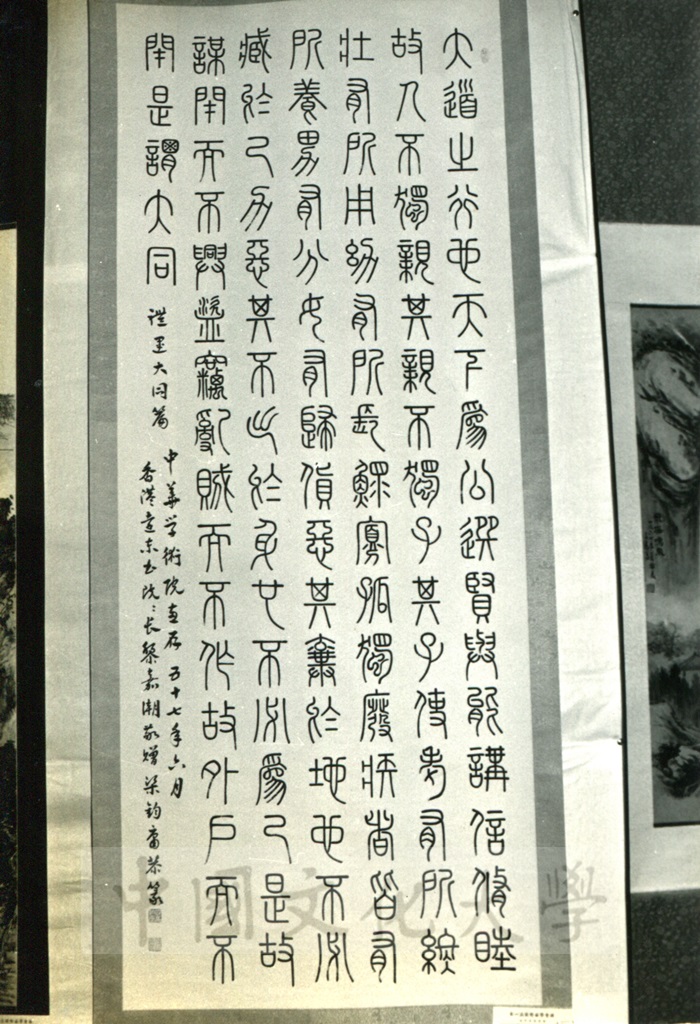 大道之行也天下爲公選賢與能講信脩睦
故人不獨親其親不獨子其子使老有所終
壯有所用幼有所長鰥寡孤獨廢疾者皆有
所養男有分女有歸貨惡其棄於地也不必
藏於己力惡其不出於身也不必爲己是故
謀閉而不興盜竊亂賊而不作故外戶而不
閉是謂大同
禮運大同篇
中華学術院惠存 五十七年六月
香港遠东书院〻長黎嘉潮敬贈 梁鈞庸恭篆
中國文化大學